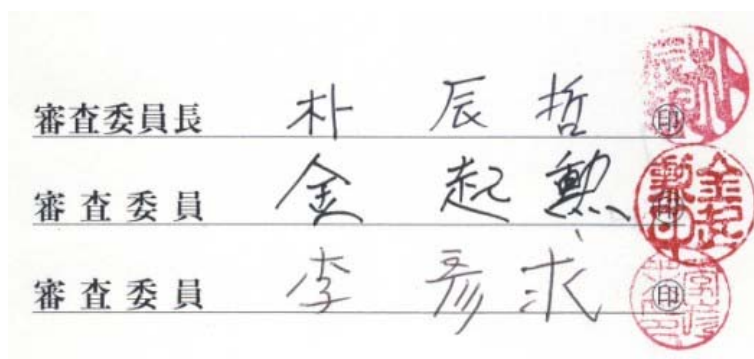 審査委員長 朴 辰 哲 印
審査委員 金 起 勳 印
審査委員 李 彦 求 印